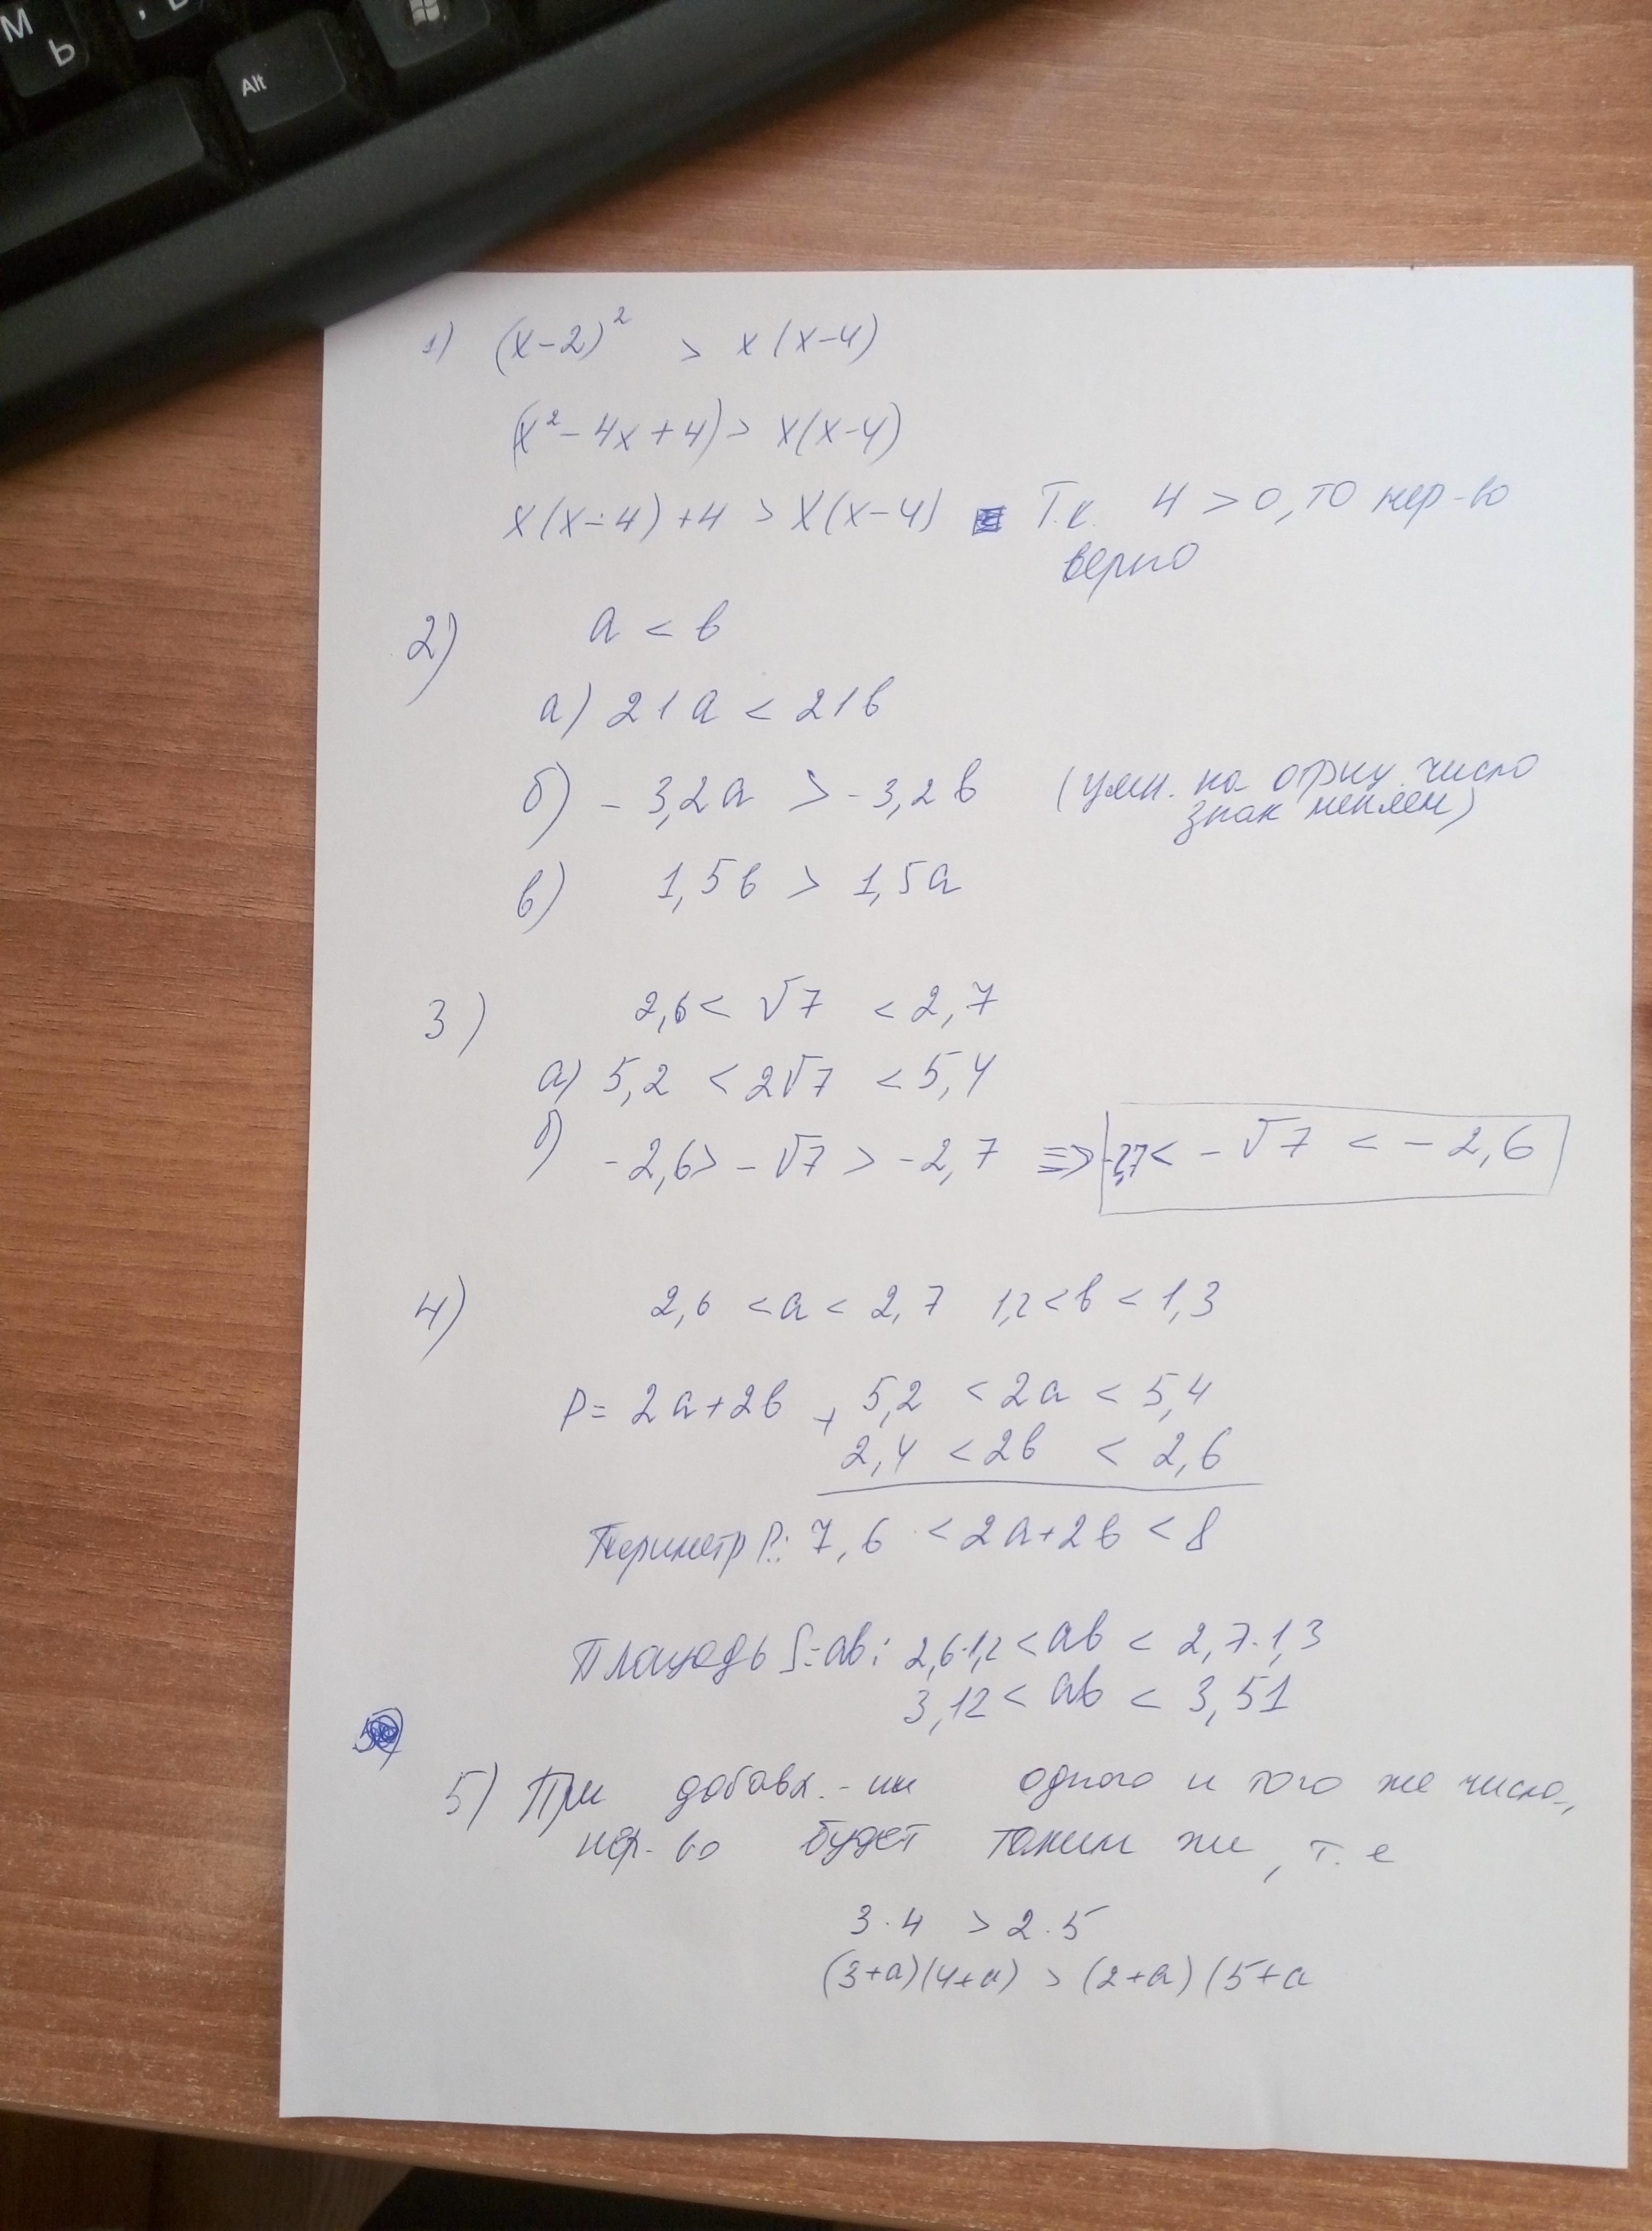 М
Ь
Alt
1) (x-2)² > x(x-4)
(x²-4x+4) > x(x-4)
x(x-4)+4 > x(x-4) Т.к. 4 > 0, то нер-во
верно
2) a < b
а) 21a < 21b
б) -3,2a > -3,2b (умн. на отриц. число
знак меняем)
в) 1,5b > 1,5a
3) 2,6 < √7 < 2,7
а) 5,2 < 2√7 < 5,4
б) -2,6 > -√7 > -2,7 => -2,7 < -√7 < -2,6
4) 2,6 < a < 2,7 1,2 < b < 1,3
P = 2a+2b + 5,2 < 2a < 5,4
2,4 < 2b < 2,6
Периметр P: 7,6 < 2a+2b < 8
Площадь S=ab: 2,6·1,2 < ab < 2,7·1,3
3,12 < ab < 3,51
5) При добавл.-ии одного и того же числа,
нер-во будет таким же, т.е
3·4 > 2·5
(3+a)(4+a) > (2+a)(5+a